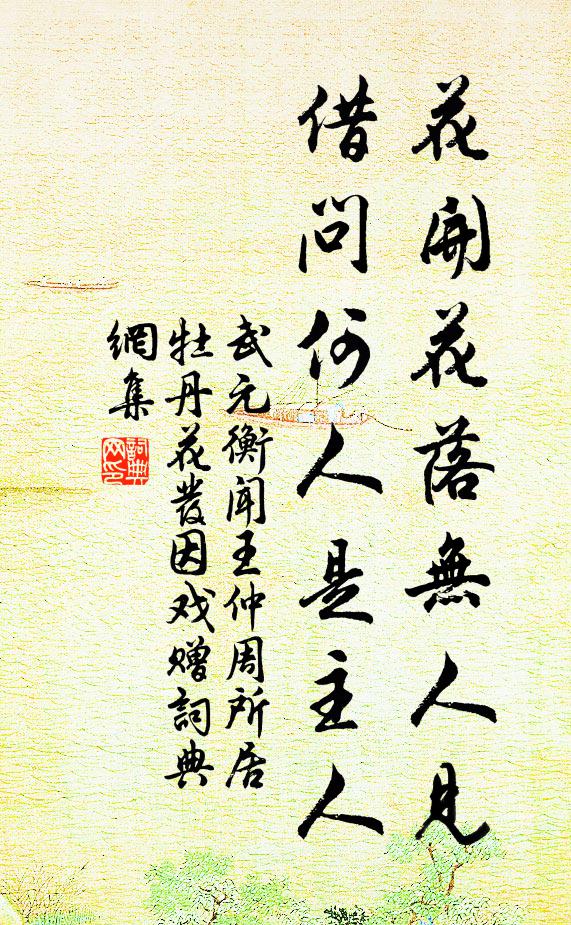 花開花落無人見
借問何人是主人
武元衡聞王仲周所居
牡丹花發因戏贈詞典
網集
詞典网印